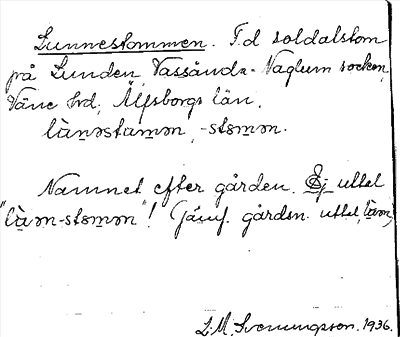 Lunnestommen. F.d soldatstom
på Lunden, Vassända-Naglum socken,
Väne hd, Älfsborgs län.
làn̥əstam̥ən, -stəm̥ən.
Namnet efter gården. Ej uttal
"là̤ən-stəm̥ən"! (Jämf. gården uttal
L.M. Svenungsson. 1936.